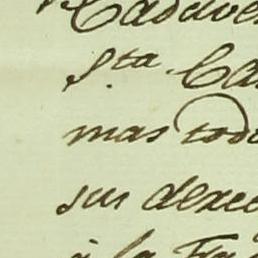 Cadave
S.ta Ca
mas todo
sus derec
à la Fra